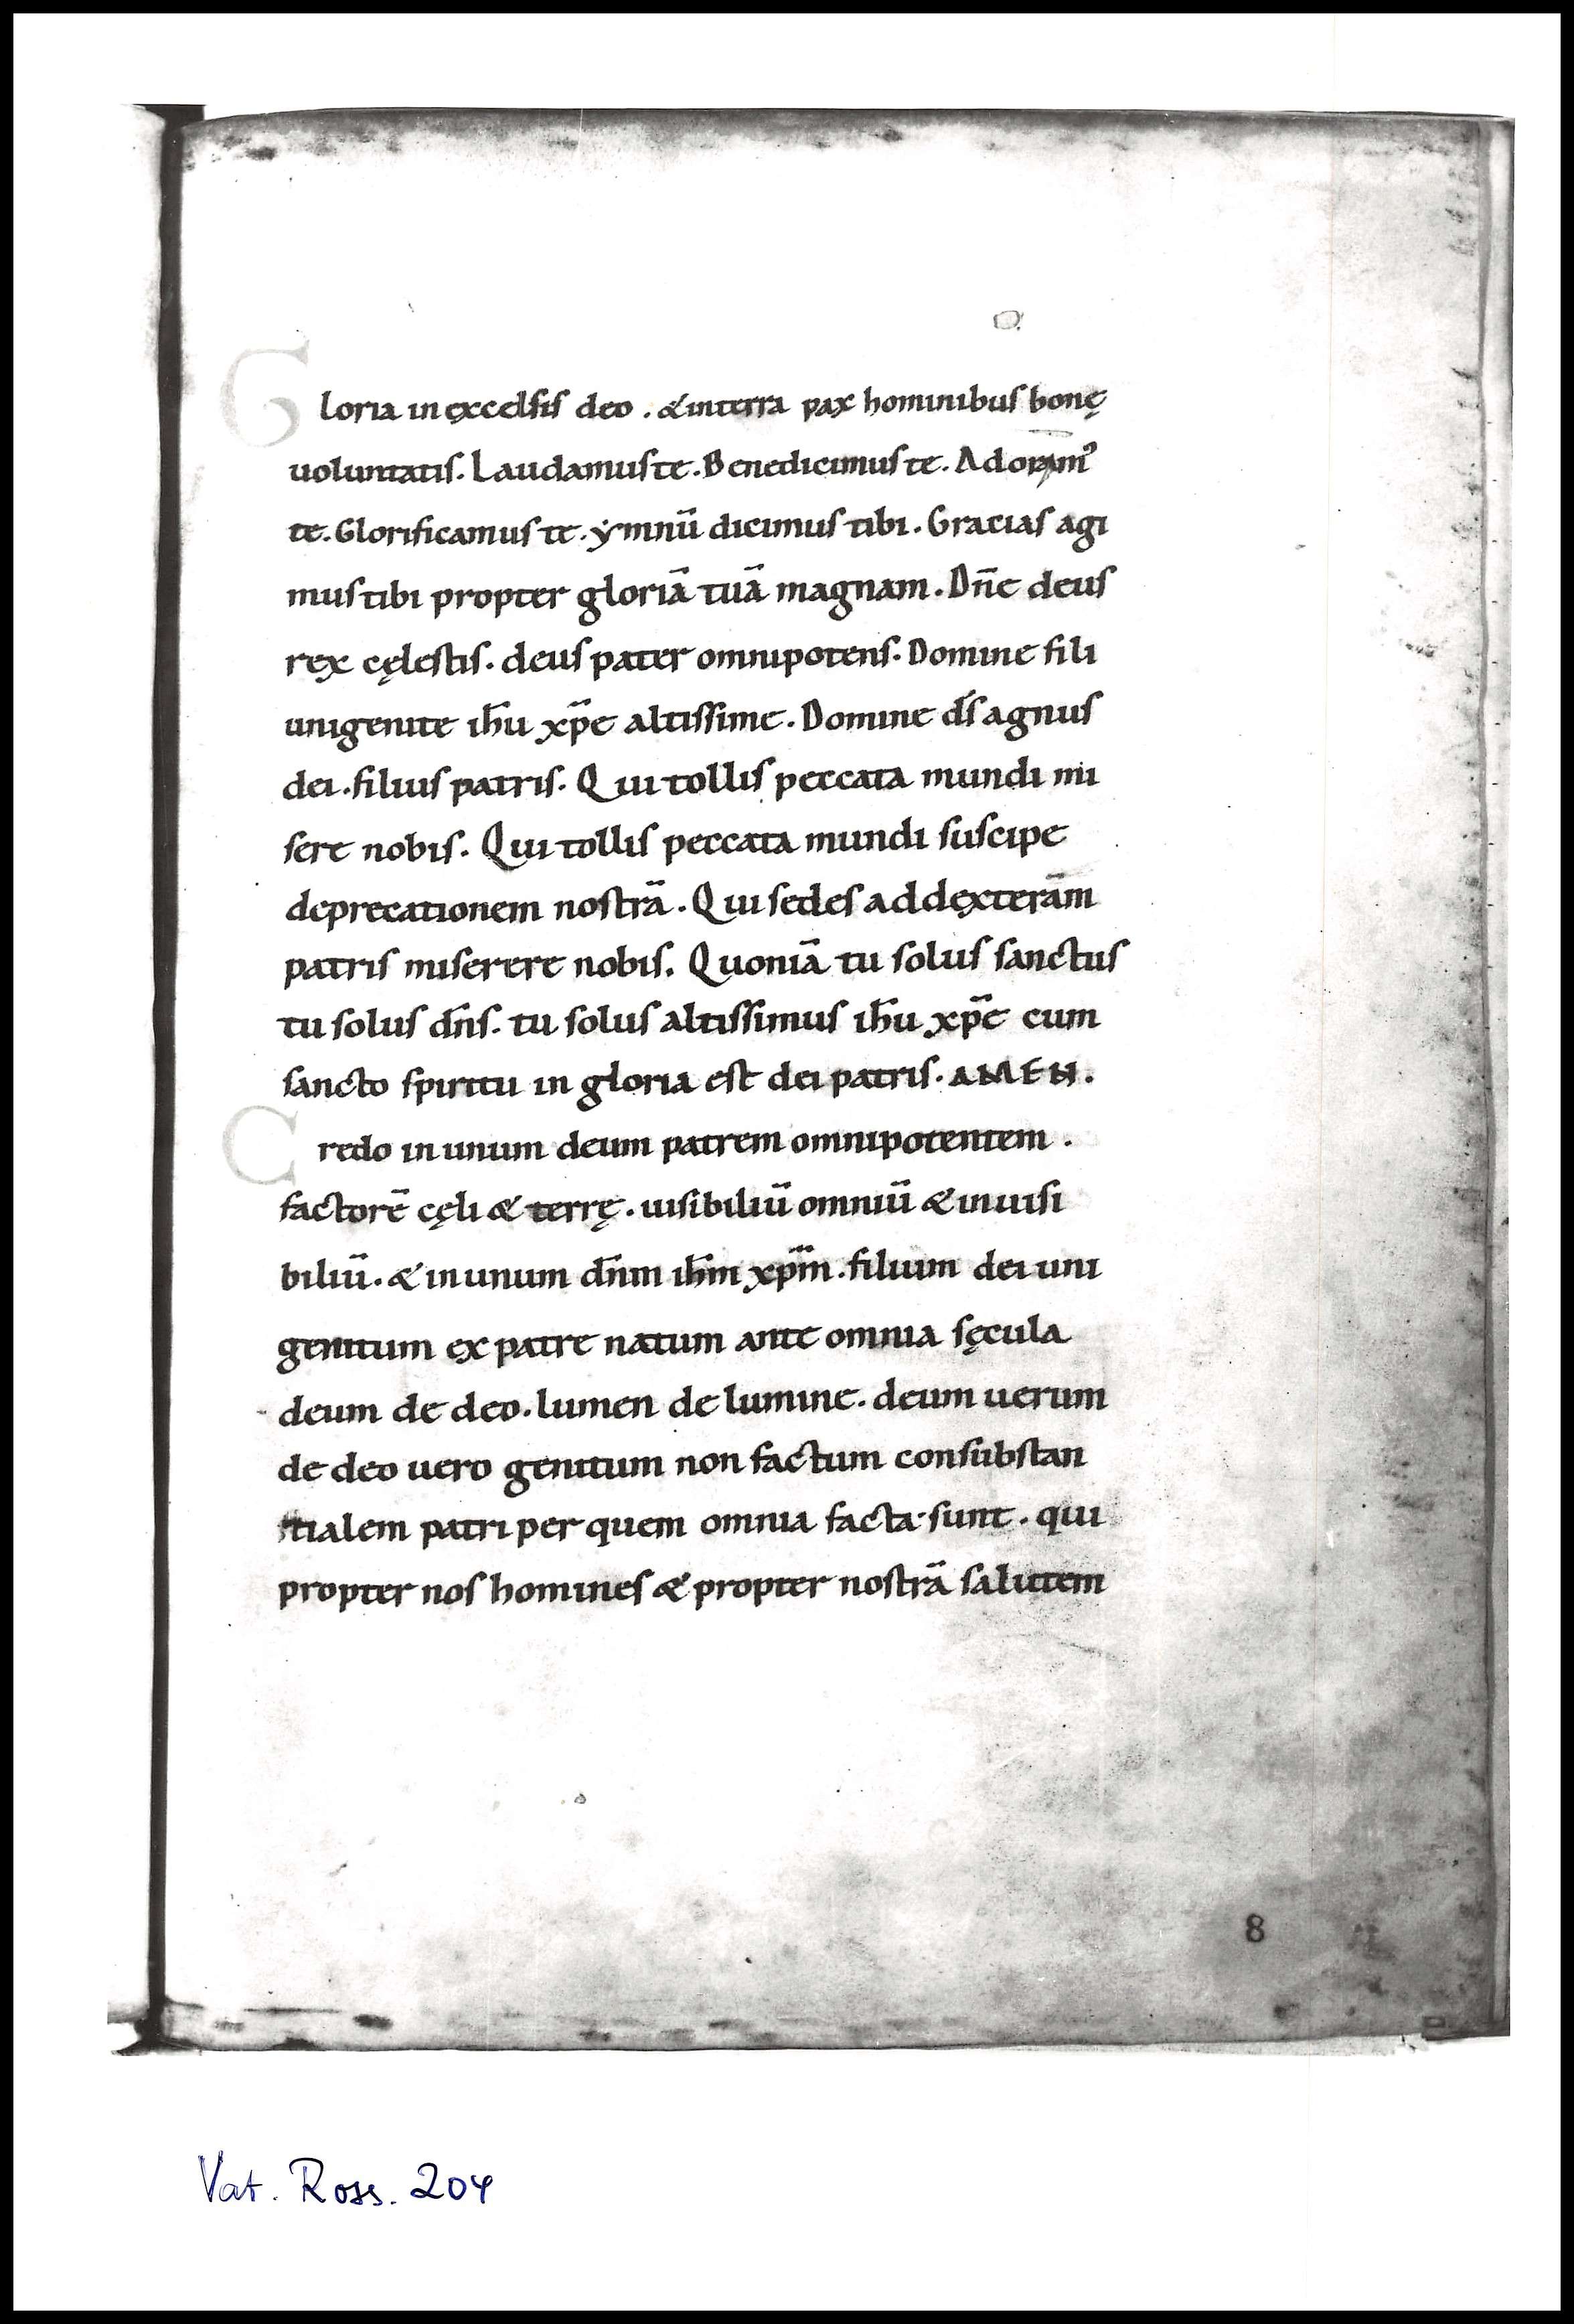 Gloria in excelsis deo . & in terra pax hominibus bonę
uoluntatis. Laudamus te. Benedicimus te. Adoram᾽
te. Glorificamus te. ẏmnū dicimus tibi. Gracias agi
mus tibi propter gloriā tuā magnam. Dn̄e deus
rex cęlestis. deus pater omnipotens. Domine fili
unigenite ih̄u xp̄e altissime. Domine ds̄ agnus
dei. filius patris. Qui tollis peccata mundi mi
sere nobis. Qui tollis peccata mundi suscipe
deprecationem nostrā. Qui sedes ad dęxterām
patris miserere nobis. Quoniā tu solus sanctus
tu solus dn̄s. tu solus altissimus ih̄u xp̄e cum
sancto spiritu in gloria est dei patris. AMEN.
Credo in unum deum patrem omnipotentem.
factorē cęli & terrę. uisibiliū omniū & inuisi
biliū. & in unum dn̄m ih̄m xp̄m. filium dei uni
genitum ex patre natum ante omnia sęcula
deum de deo. lumen de lumine. deum uerum
de deo uero genitum non factum consubstan
tialem patri per quem omnia facta sunt. qui
propter nos homines & propter nostrā salutem
8
Vat. Ross. 204